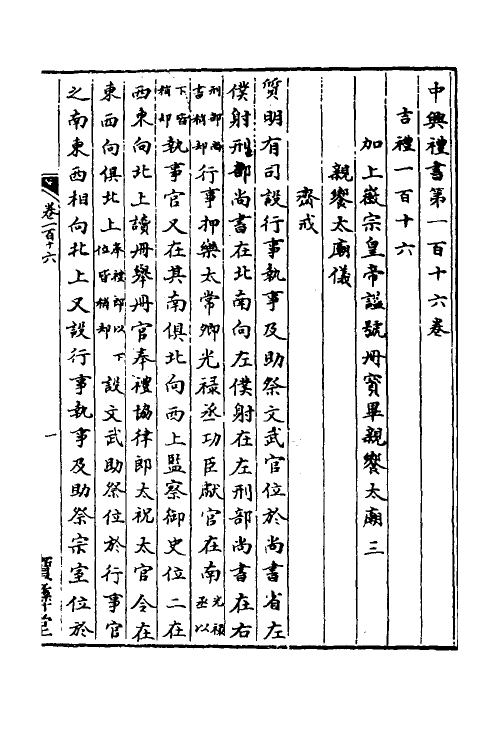 中興禮書第一百十六卷
吉禮一百十六
加上徽宗皇帝諡號册寳畢親饗太廟三
親饗太廟儀
齋戒
質明有司設行事執事及助祭文武官位於尚書省左
僕射刑部尚書在北南向左僕射在左刑部尚書在右
刑部尚書稍却行事押樂太常卿光禄丞功臣獻官在南光禄丞以
下皆稍却執事官又在其南俱北向西上監察御史位二在
西東向北上讀册舉册官奉禮協律郎太祝太官令在
東西向俱北上奉禮郎以下位皆稍却設文武助祭位於行事官
之南東西相向北上又設行事執事及助祭宗室位於
卷一百十六
一